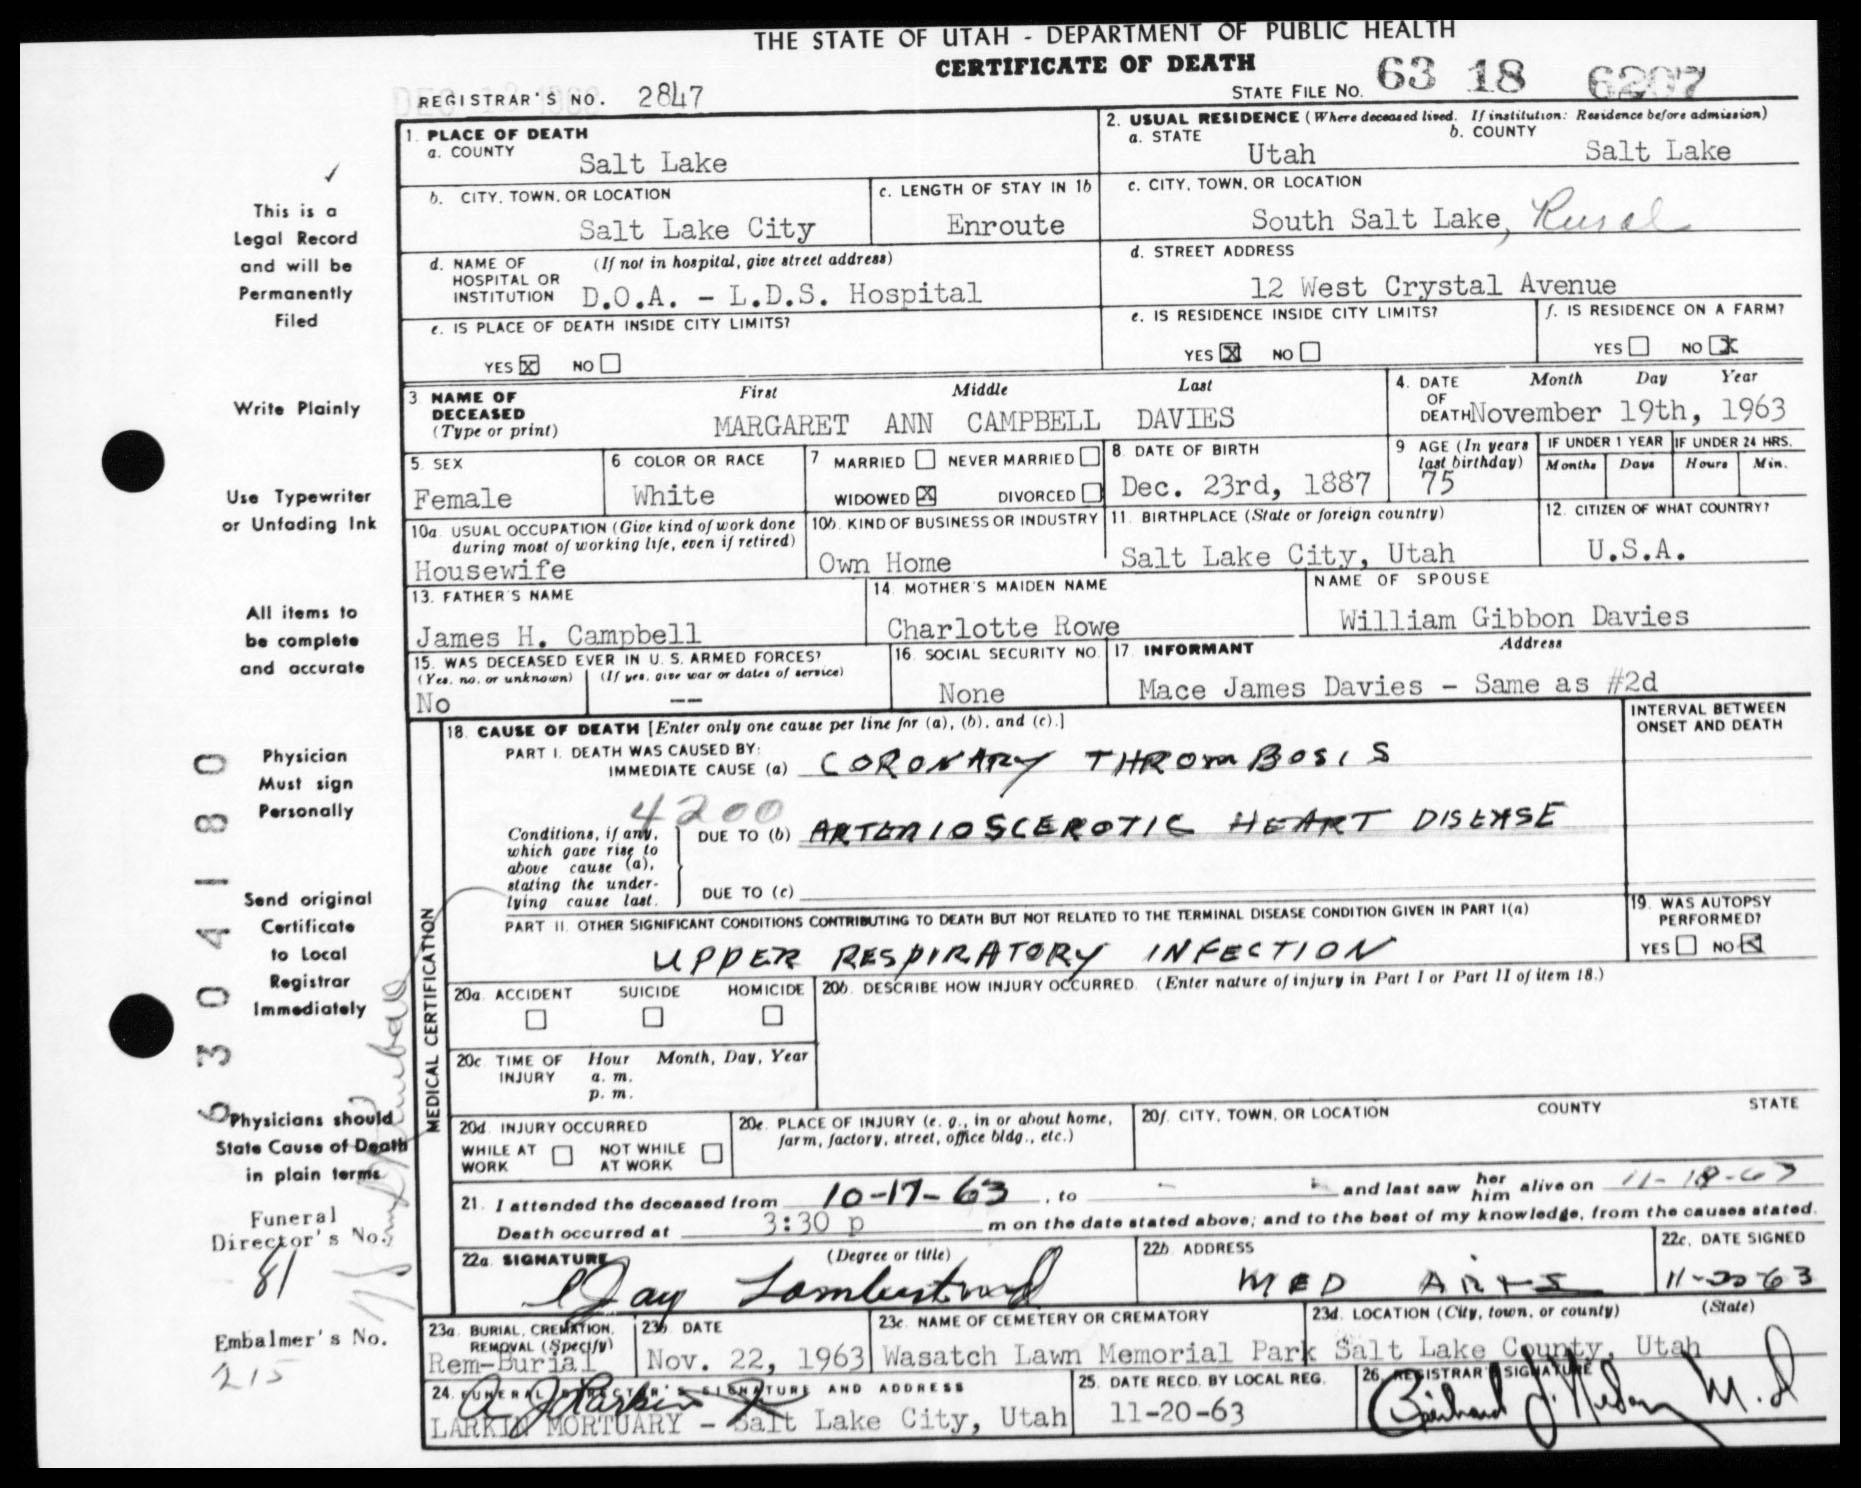 THE STATE OF UTAH - DEPARTMENT OF PUBLIC HEALTH
CERTIFICATE OF DEATH
REGISTRAR'S NO. 2847
STATE FILE NO. 63 18 6207
1. PLACE OF DEATH
a. COUNTY
Salt Lake
2. USUAL RESIDENCE (Where deceased lived. If institution: Residence before admission)
a. STATE
Utah
b. COUNTY
Salt Lake
b. CITY, TOWN, OR LOCATION
Salt Lake City
c. LENGTH OF STAY IN 1b
Enroute
c. CITY, TOWN, OR LOCATION
South Salt Lake, Rural
d. NAME OF HOSPITAL OR INSTITUTION
(If not in hospital, give street address)
D.O.A. - L.D.S. Hospital
d. STREET ADDRESS
12 West Crystal Avenue
e. IS PLACE OF DEATH INSIDE CITY LIMITS?
YES X NO
e. IS RESIDENCE INSIDE CITY LIMITS?
YES X NO
f. IS RESIDENCE ON A FARM?
YES NO X
3 NAME OF DECEASED
(Type or print)
First Middle Last
MARGARET ANN CAMPBELL DAVIES
4. DATE OF DEATH
Month Day Year
November 19th, 1963
5. SEX
Female
6 COLOR OR RACE
White
7 MARRIED NEVER MARRIED
WIDOWED X DIVORCED
8 DATE OF BIRTH
Dec. 23rd, 1887
9 AGE (In years last birthday)
75
IF UNDER 1 YEAR
Months Days
IF UNDER 24 HRS.
Hours Min.
10a USUAL OCCUPATION (Give kind of work done during most of working life, even if retired)
Housewife
10b. KIND OF BUSINESS OR INDUSTRY
Own Home
11. BIRTHPLACE (State or foreign country)
Salt Lake City, Utah
12. CITIZEN OF WHAT COUNTRY?
U.S.A.
13. FATHER'S NAME
James H. Campbell
14. MOTHER'S MAIDEN NAME
Charlotte Rowe
NAME OF SPOUSE
William Gibbon Davies
15. WAS DECEASED EVER IN U. S. ARMED FORCES?
(Yes, no, or unknown) (If yes, give war or dates of service)
No --
16. SOCIAL SECURITY NO.
None
17. INFORMANT Address
Mace James Davies - Same as #2d
MEDICAL CERTIFICATION
18. CAUSE OF DEATH [Enter only one cause per line for (a), (b), and (c).]
INTERVAL BETWEEN ONSET AND DEATH
PART I. DEATH WAS CAUSED BY:
IMMEDIATE CAUSE (a) CORONARY THROMBOSIS
4200
Conditions, if any, which gave rise to above cause (a), stating the underlying cause last.
DUE TO (b) ARTERIOSCEROTIC HEART DISEASE
DUE TO (c)
PART II. OTHER SIGNIFICANT CONDITIONS CONTRIBUTING TO DEATH BUT NOT RELATED TO THE TERMINAL DISEASE CONDITION GIVEN IN PART I(a)
UPPER RESPIRATORY INFECTION
19. WAS AUTOPSY PERFORMED?
YES NO X
20a. ACCIDENT SUICIDE HOMICIDE
20b. DESCRIBE HOW INJURY OCCURRED. (Enter nature of injury in Part I or Part II of item 18.)
20c TIME OF INJURY
Hour Month, Day, Year
a. m.
p. m.
20d. INJURY OCCURRED
WHILE AT WORK NOT WHILE AT WORK
20e. PLACE OF INJURY (e. g., in or about home, farm, factory, street, office bldg., etc.)
20f. CITY, TOWN, OR LOCATION COUNTY STATE
21. I attended the deceased from 10-17-63, to and last saw her him alive on 11-18-63
Death occurred at 3:30 p m on the date stated above; and to the best of my knowledge, from the causes stated.
22a SIGNATURE (Degree or title)
22b. ADDRESS
MED ARTS
22c. DATE SIGNED
11-20-63
23a. BURIAL, CREMATION, REMOVAL (Specify)
Rem-Burial
23b DATE
Nov. 22, 1963
23c. NAME OF CEMETERY OR CREMATORY
Wasatch Lawn Memorial Park
23d. LOCATION (City, town, or county) (State)
Salt Lake County, Utah
24. FUNERAL DIRECTOR'S SIGNATURE AND ADDRESS
LARKIN MORTUARY - Salt Lake City, Utah
25. DATE RECD. BY LOCAL REG.
11-20-63
26. REGISTRAR'S SIGNATURE
M.D
This is a
Legal Record
and will be
Permanently
Filed
Write Plainly
Use Typewriter
or Unfading Ink
All items to
be complete
and accurate
Physician
Must sign
Personally
Send original
Certificate
to Local
Registrar
Immediately
Physicians should
State Cause of Death
in plain terms
Funeral
Director's No.
81
Embalmer's No.
215
6304180